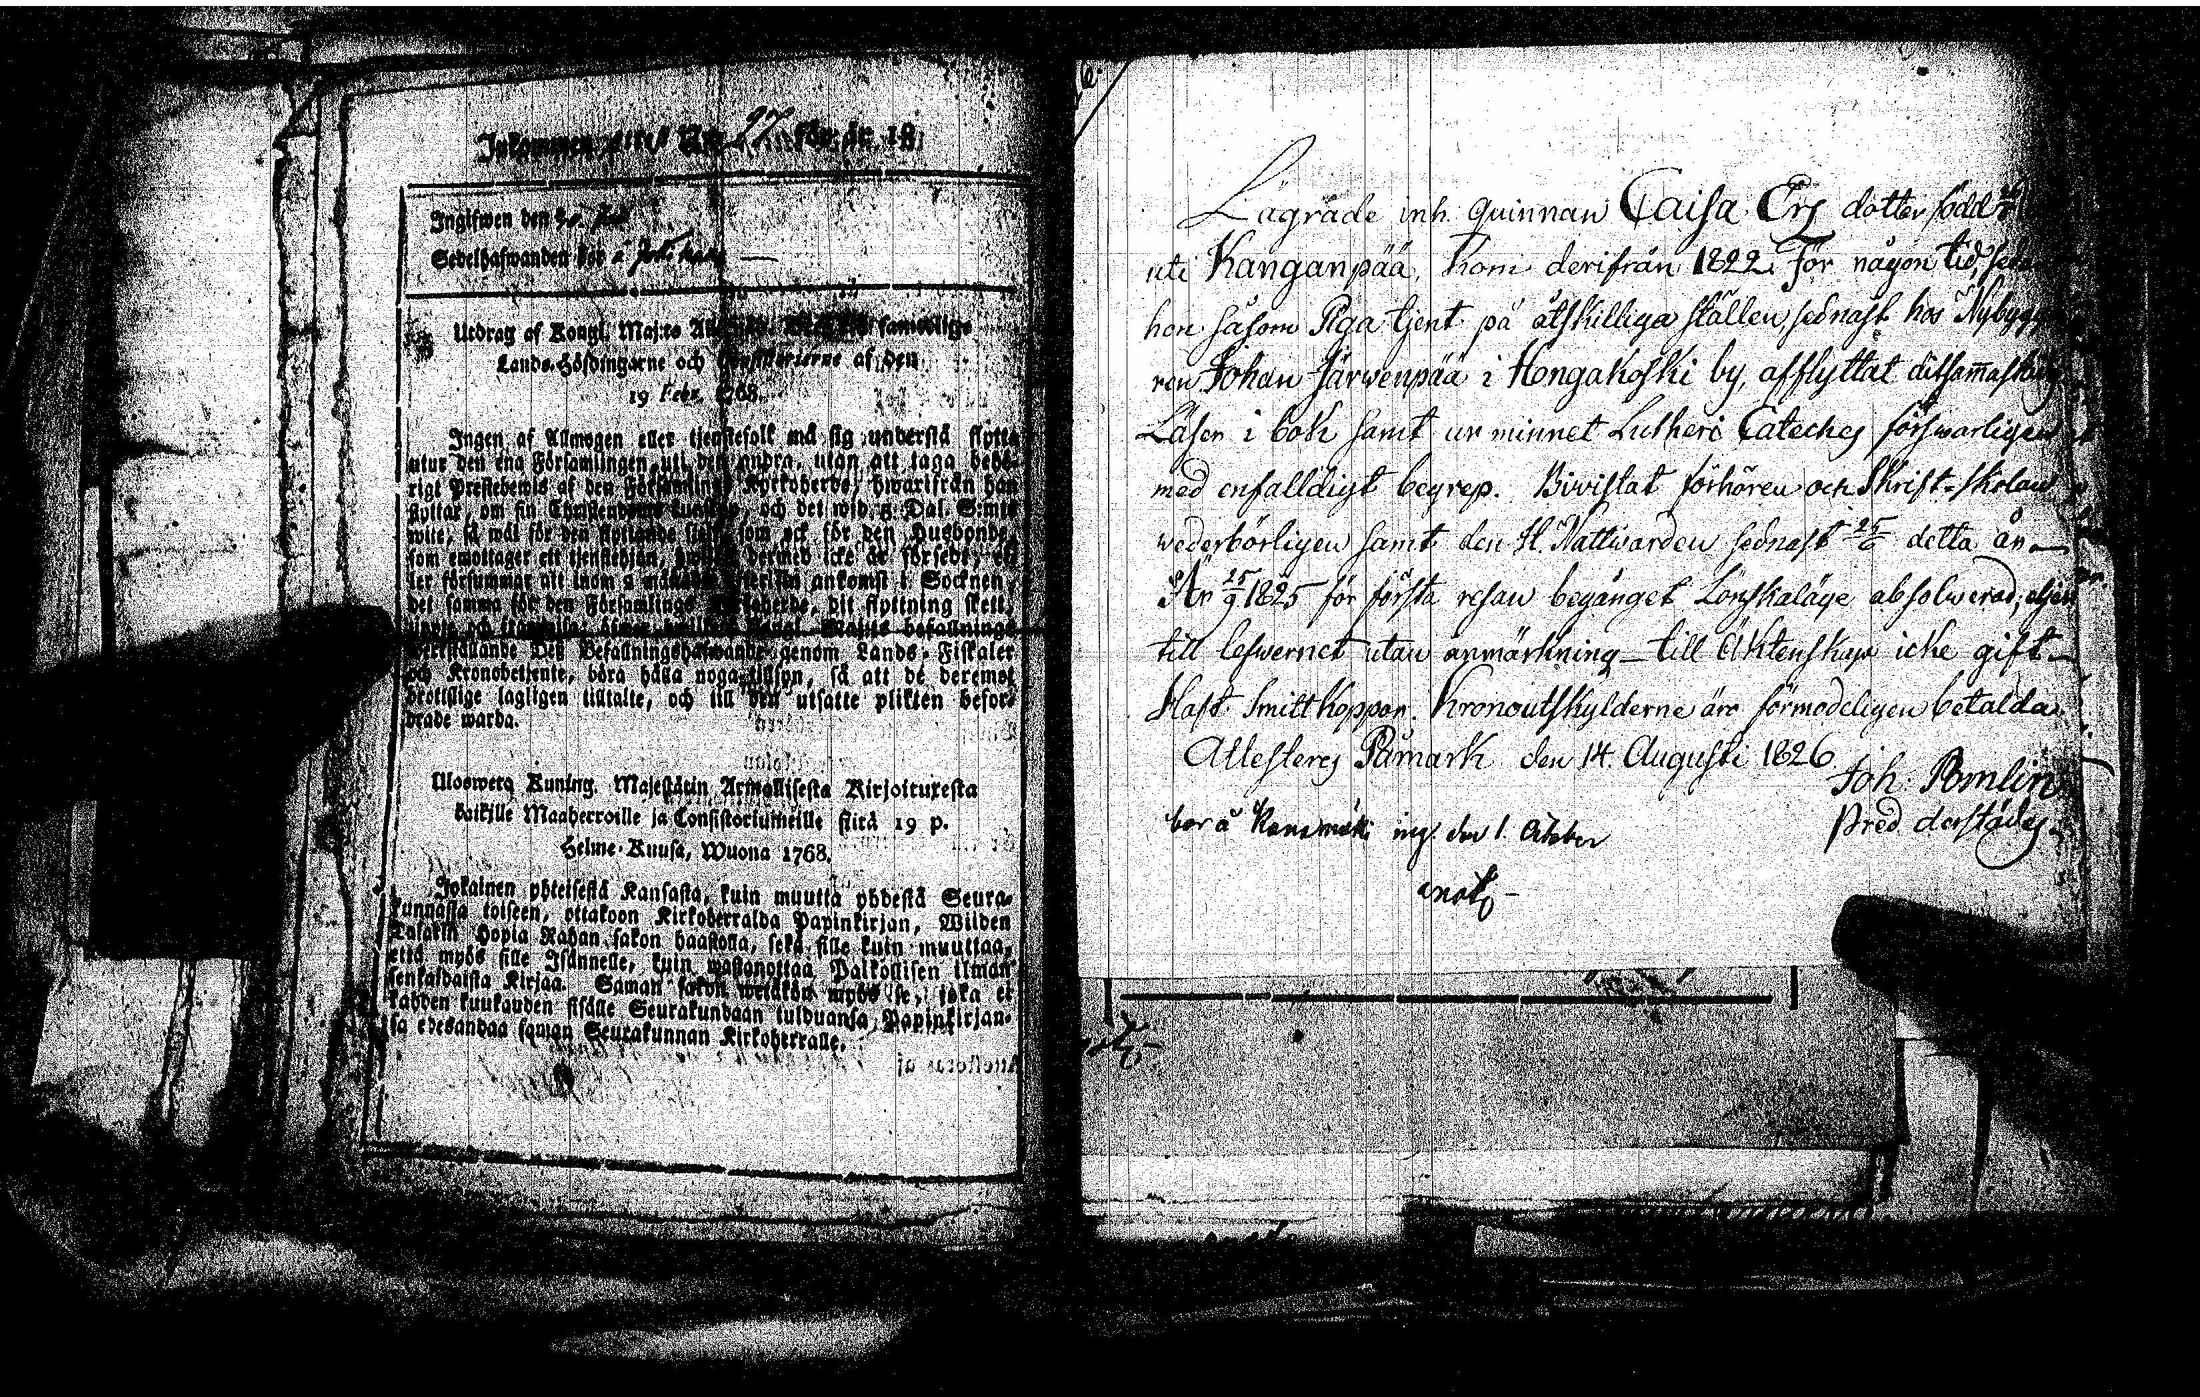 Inkommen attest N:o 27 för år 18
Ingifwen den
Sedelhafwanden bor å
Utdrag af Kongl. Maj:ts samtelige
Lands-Höfdingarne och Consistorierne af den
19 Febr. 1768.
Ingen af Allmogen eller tjenstefolk må sig understå flytta
utur den ena Församlingen uti den andra, utan att taga behö-
rigt Prestebewis af den Församlings Kyrkoherde, hwarifrån han
flyttar, om sin Christendoms kunskap, och det wid 5 Dal. S:mts
wite, så wäl för den flyttande sielf, som ock för den Husbonde,
som emottager ett tjenstehjon, dermed icke är försedt, el-
ler försummar att inom 2 månader efter sin ankomst i Socknen,
det samma för den Församlings Kyrkoherde, dit flyttning skett,
befallnings
werkställande Dess Befallningshafwande genom Lands-Fiskaler
och Kronobetjente, böra hålla noga tillsyn, så att de deremot
brottslige lagligen tilltalte, och till den utsatte plikten befor-
drade warda.
Uloswetty Kuning. Majestätin Armollisesta Kirjoituxesta
kaikille Maaherroille ja Consistoriumeille siitä 19 p.
Helme-Kuusa, Wuona 1768.
Jokainen yhteisestä Kansasta, kuin muutta yhdestä Seura-
kunnasta toiseen, ottakoon Kirkoherralda Papinkirjan, Wiiden
Talarin Hopia Rahan sakon haastolla, sekä sille kuin muuttaa,
että myös sille Isännelle, kuin wastanottaa Palkollisen ilman
senkaldaista Kirjaa. Saman sakon wetäkön myös se, joka ei
kahden kuukauden sisälle Seurakundaan tulduansa, Papinkirjan-
sa edesandaa saman Seurakunnan Kirkoherralle.
Lägrade inh. Quinnan Caisa Ers dotter född
uti Kanganpää, kom derifrån 1822. För någon tid sedan
hon såsom Piga tjent på åtskilliga ställen, sednast hos Nybygga
ren Johan Järwenpää i Hongakoski by, afflyttat
Läser i bok samt ur minnet Lutheri Cateches förswarligen
med enfalldigt begrep. Bivistat förhören och Skrift-skolan
wederbörligen samt den H. Nattwarden sednast 25/6 detta år
Är 25/9 1825 för första resan begånget Lönskaläge absolverad;
till lefwernet utan anmärkning – till Äktenskap icke gift –
Haft Smittkoppor. Kronoutskylderne äro förmodeligen betalda
Attesteres Påmark den 14 Augusti 1826
Joh: Pomlin
Pred. derstädes.
bor å ing. den 1. October
not.